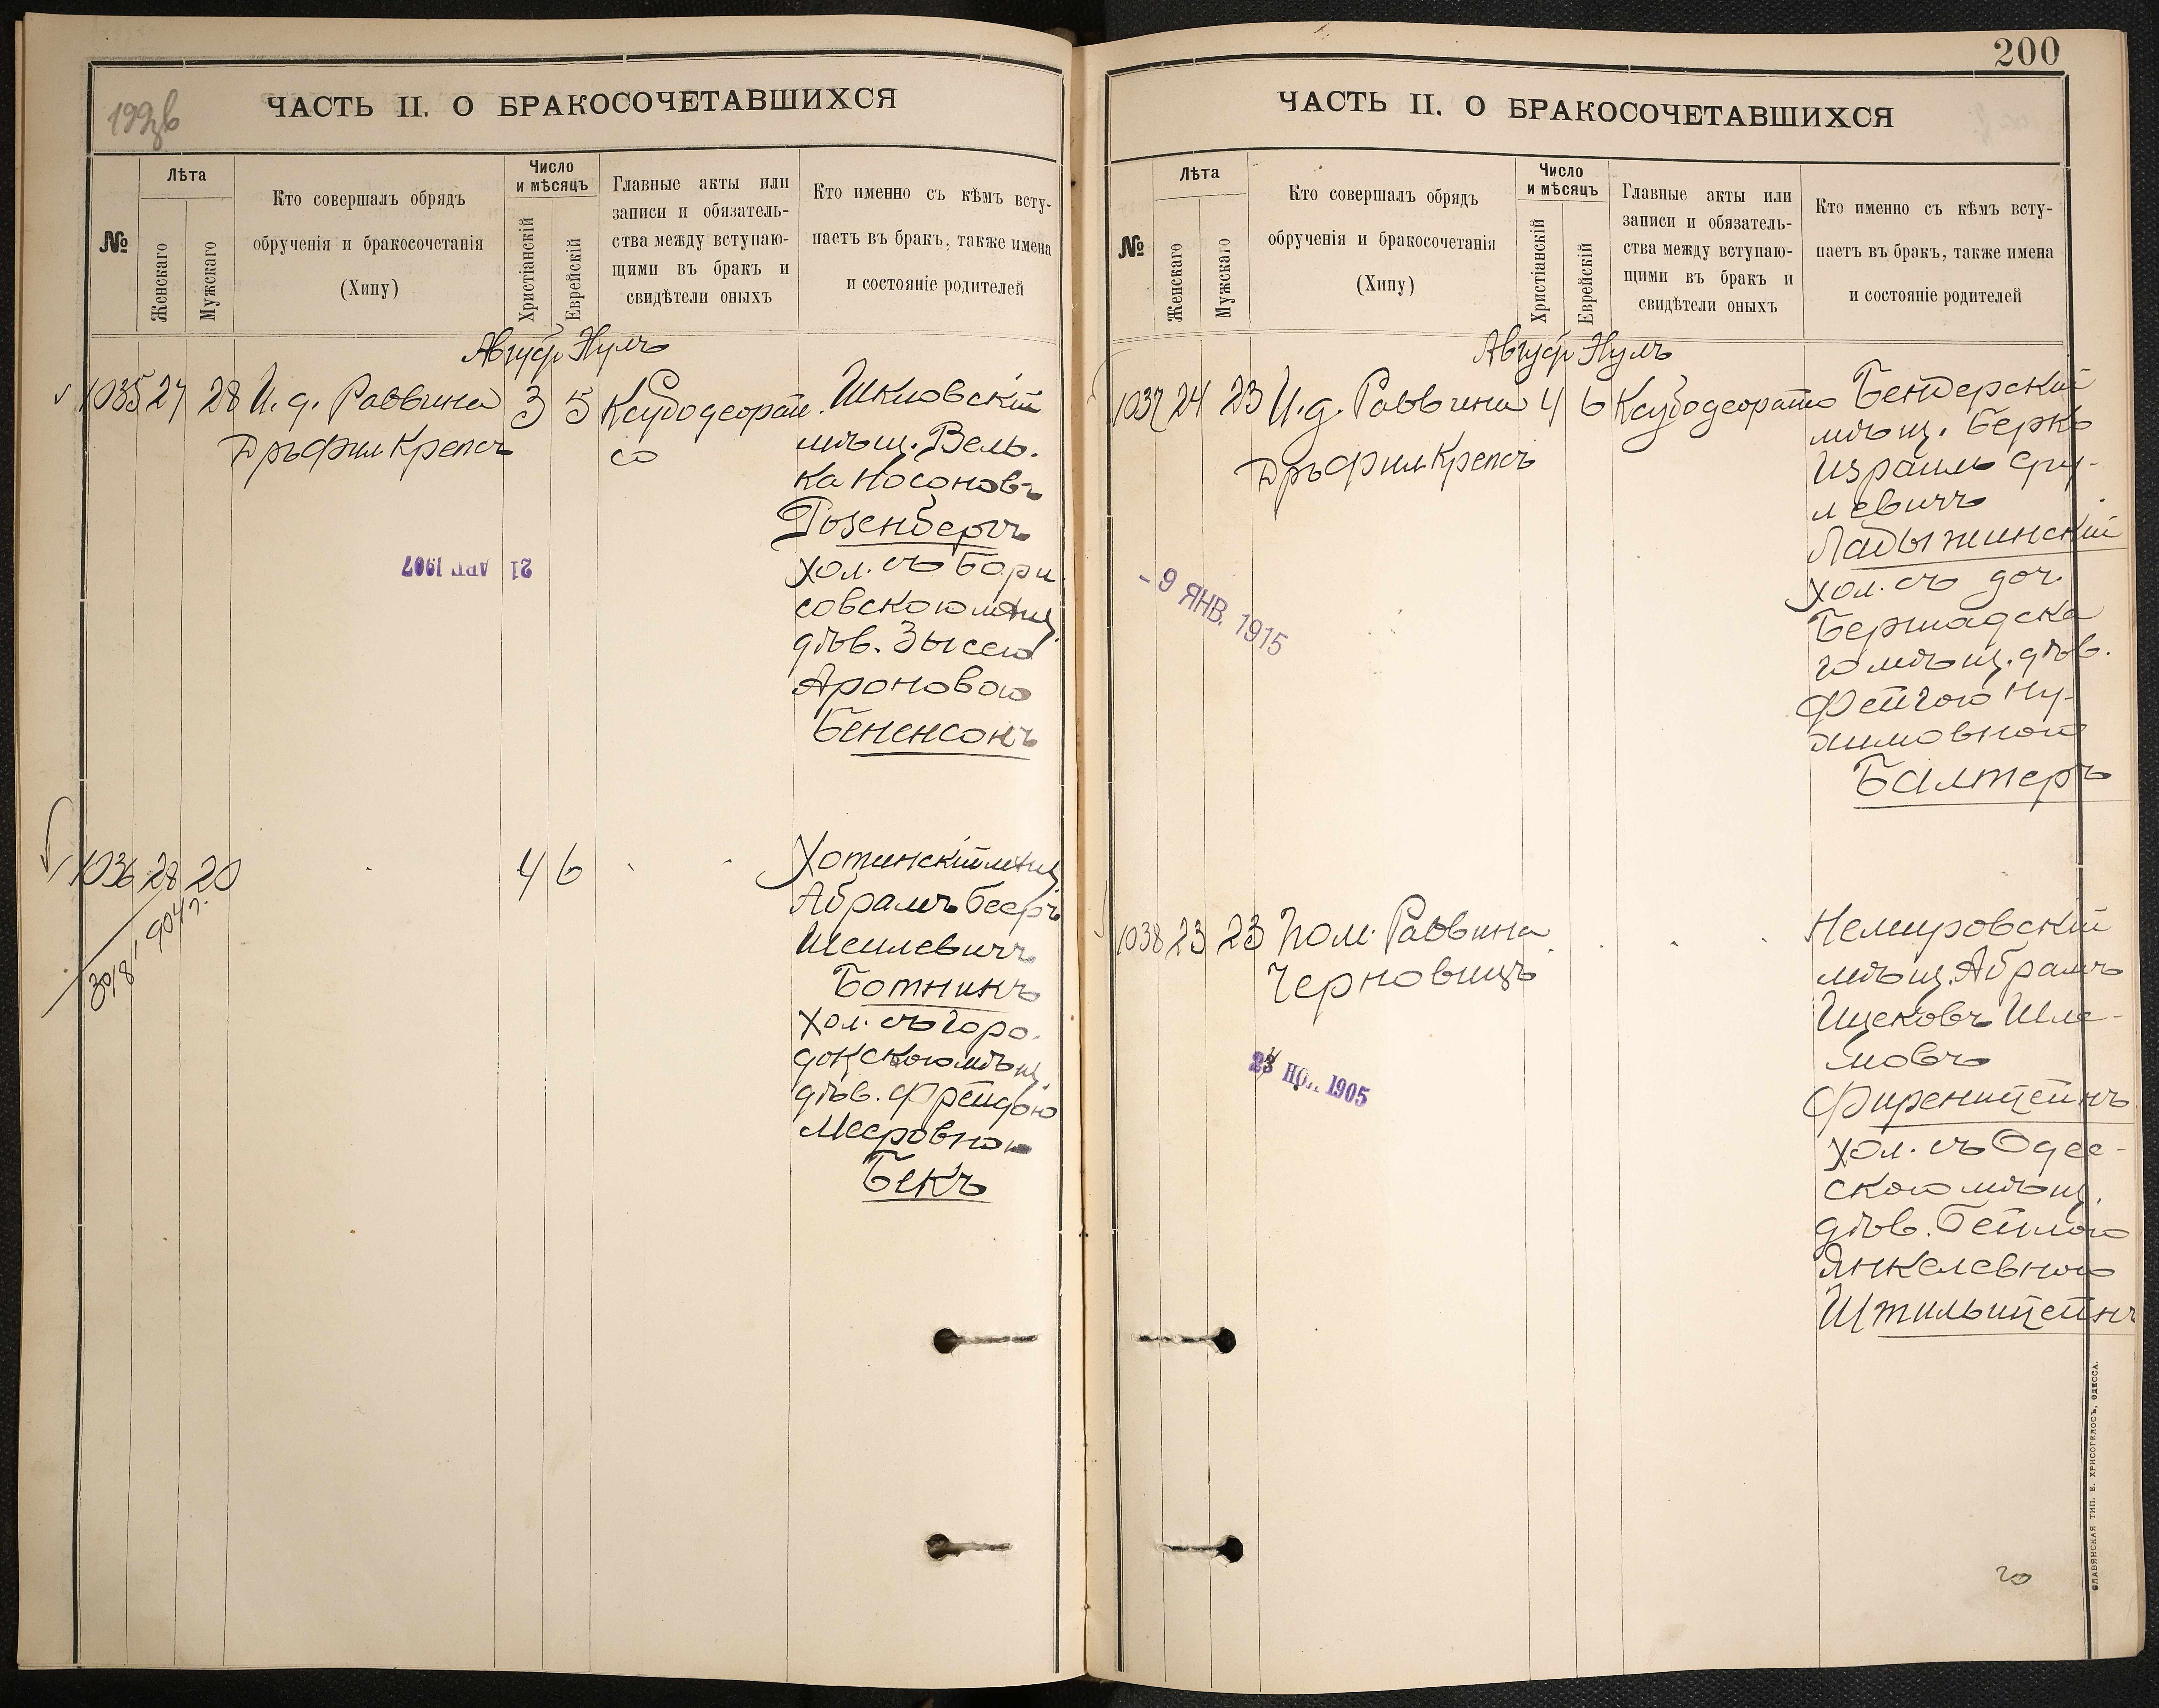 199зв
ЧАСТЬ II. О БРАКОСОЧЕТАВШИХСЯ
№
Лѣта
Женскаго
Мужскаго
Кто совершалъ обрядъ
обрученія и бракосочетанія
(Хипу)
Число
и мѣсяцъ
Христіанскій
Еврейскій
Главные акты или
записи и обязатель-
ства между вступаю-
щими въ бракъ и
свидѣтели оныхъ
Кто именно съ кѣмъ всту-
паетъ въ бракъ, также имена
и состояніе родителей
1035 27 28 И. д. Раввина 3 5
Дръ Фил Крепсъ
со
Шкловскій
мѣщ. Вель-
ка Носоновъ
Розенбергъ
хол. съ Бори-
совскою мѣщ.
дѣв. Зысею
Ароновою
Бененсонъ
21 АВГ. 1907
1036 28 20 4 6
3018 904 г.
Хотинскій мѣщ.
Абрамъ Бееръ
Шеилевичъ
Ботникъ
хол. съ Горо-
докскою мѣщ.
дѣв. Фрейдою
Мееровною
Бекъ
200
ЧАСТЬ II. О БРАКОСОЧЕТАВШИХСЯ
№
Лѣта
Женскаго
Мужскаго
Кто совершалъ обрядъ
обрученія и бракосочетанія
(Хипу)
Число
и мѣсяцъ
Христіанскій
Еврейскій
Главные акты или
записи и обязатель-
ства между вступаю-
щими въ бракъ и
свидѣтели оныхъ
Кто именно съ кѣмъ всту-
паетъ въ бракъ, также имена
и состояніе родителей
1037 24 23 И. д. Раввина 4 6
Дръ Фил Крепсъ
Бендерскій
мѣщ. Берко
Израиль Сру-
левичъ
Ладыжинскій
хол. съ доч.
Бершадска
го мѣщ. дѣв.
Фейгою Ну-
химовною
Балтеръ
- 9 ЯНВ. 1915
1038 23 23 Пом. Раввина
Черновицъ
Немировскій
мѣщ. Абрамъ
Ицековъ Шле-
мовъ
Фиренштейнъ
хол. съ Одес-
скою мѣщ.
дѣв. Бейлою
Янкелевною
Штильштейнъ
23 НОЯ. 1905
СЛАВЯНСКАЯ ТИП. Е. ХРИСОГЕЛОСЪ, ОДЕССА.